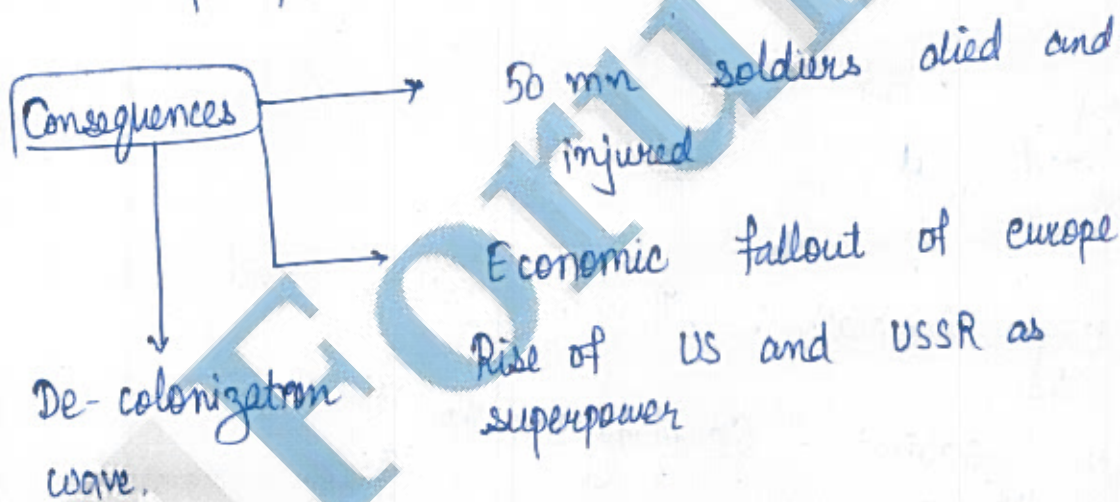 Consequences
50 mn soldiers died and
injured
Economic fallout of europe
Rise of US and USSR as
superpower
De-colonization
wave.
Forum